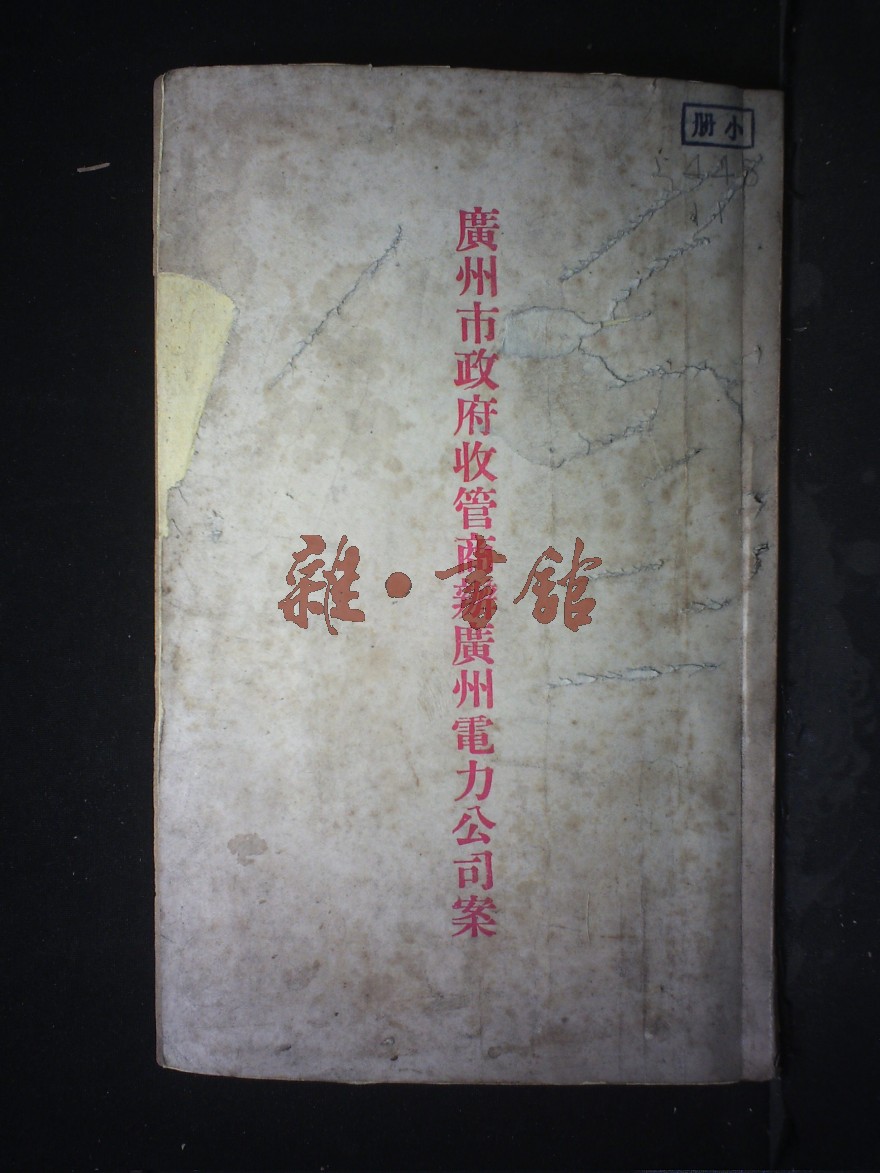 小册
5448
廣州市政府收管商辦廣州電力公司案
雜·書館